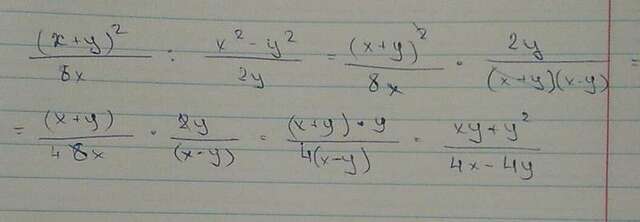 (x+y)²/8x : x²-y²/2y = (x+y)²/8x · 2y/(x+y)(x-y) =
= (x+y)/4 8x · 2y/(x-y) = (x+y)·y/4(x-y) = xy+y²/4x-4y